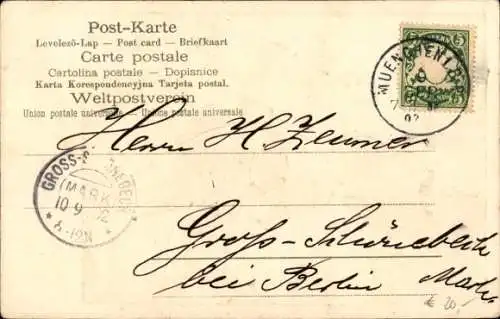 Post-Karte
Levelező-Lap — Post card — Briefkaart
Carte postale
Cartolina postale — Dopisnice
Karta Korespondencyjna Tarjeta postal.
Weltpostverein
Union postale universelle — Unione postale universale
5 5
MUENCHEN
02
Herrn H. Zeumer
GROSS-S NEBECK
(MARK)
10 9
Gross-Schönebeck
bei Berlin Mark.
€ 20,-